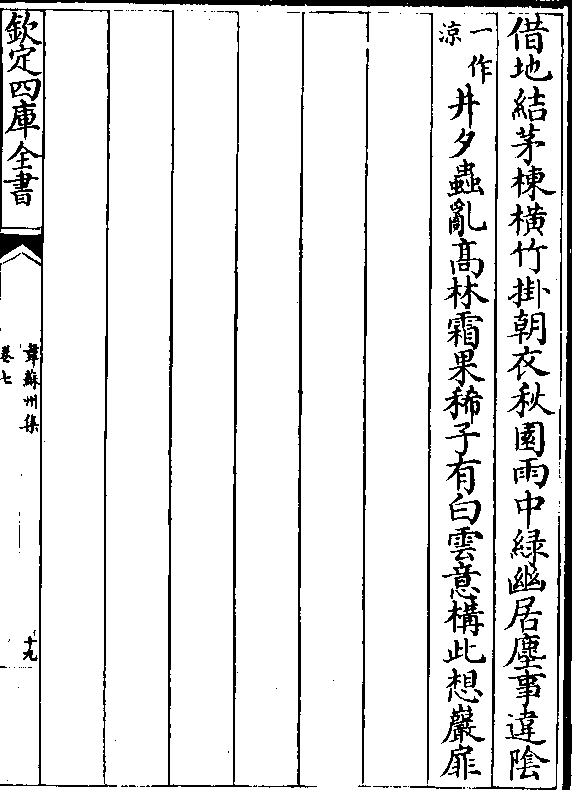 借地結茅棟橫竹掛朝衣秋園雨中緑幽居塵事違隂
一作
涼
井夕蟲亂髙林霜果稀子有白雲意構此想巖扉
欽定四庫全書
韋蘇州集
卷七
十九